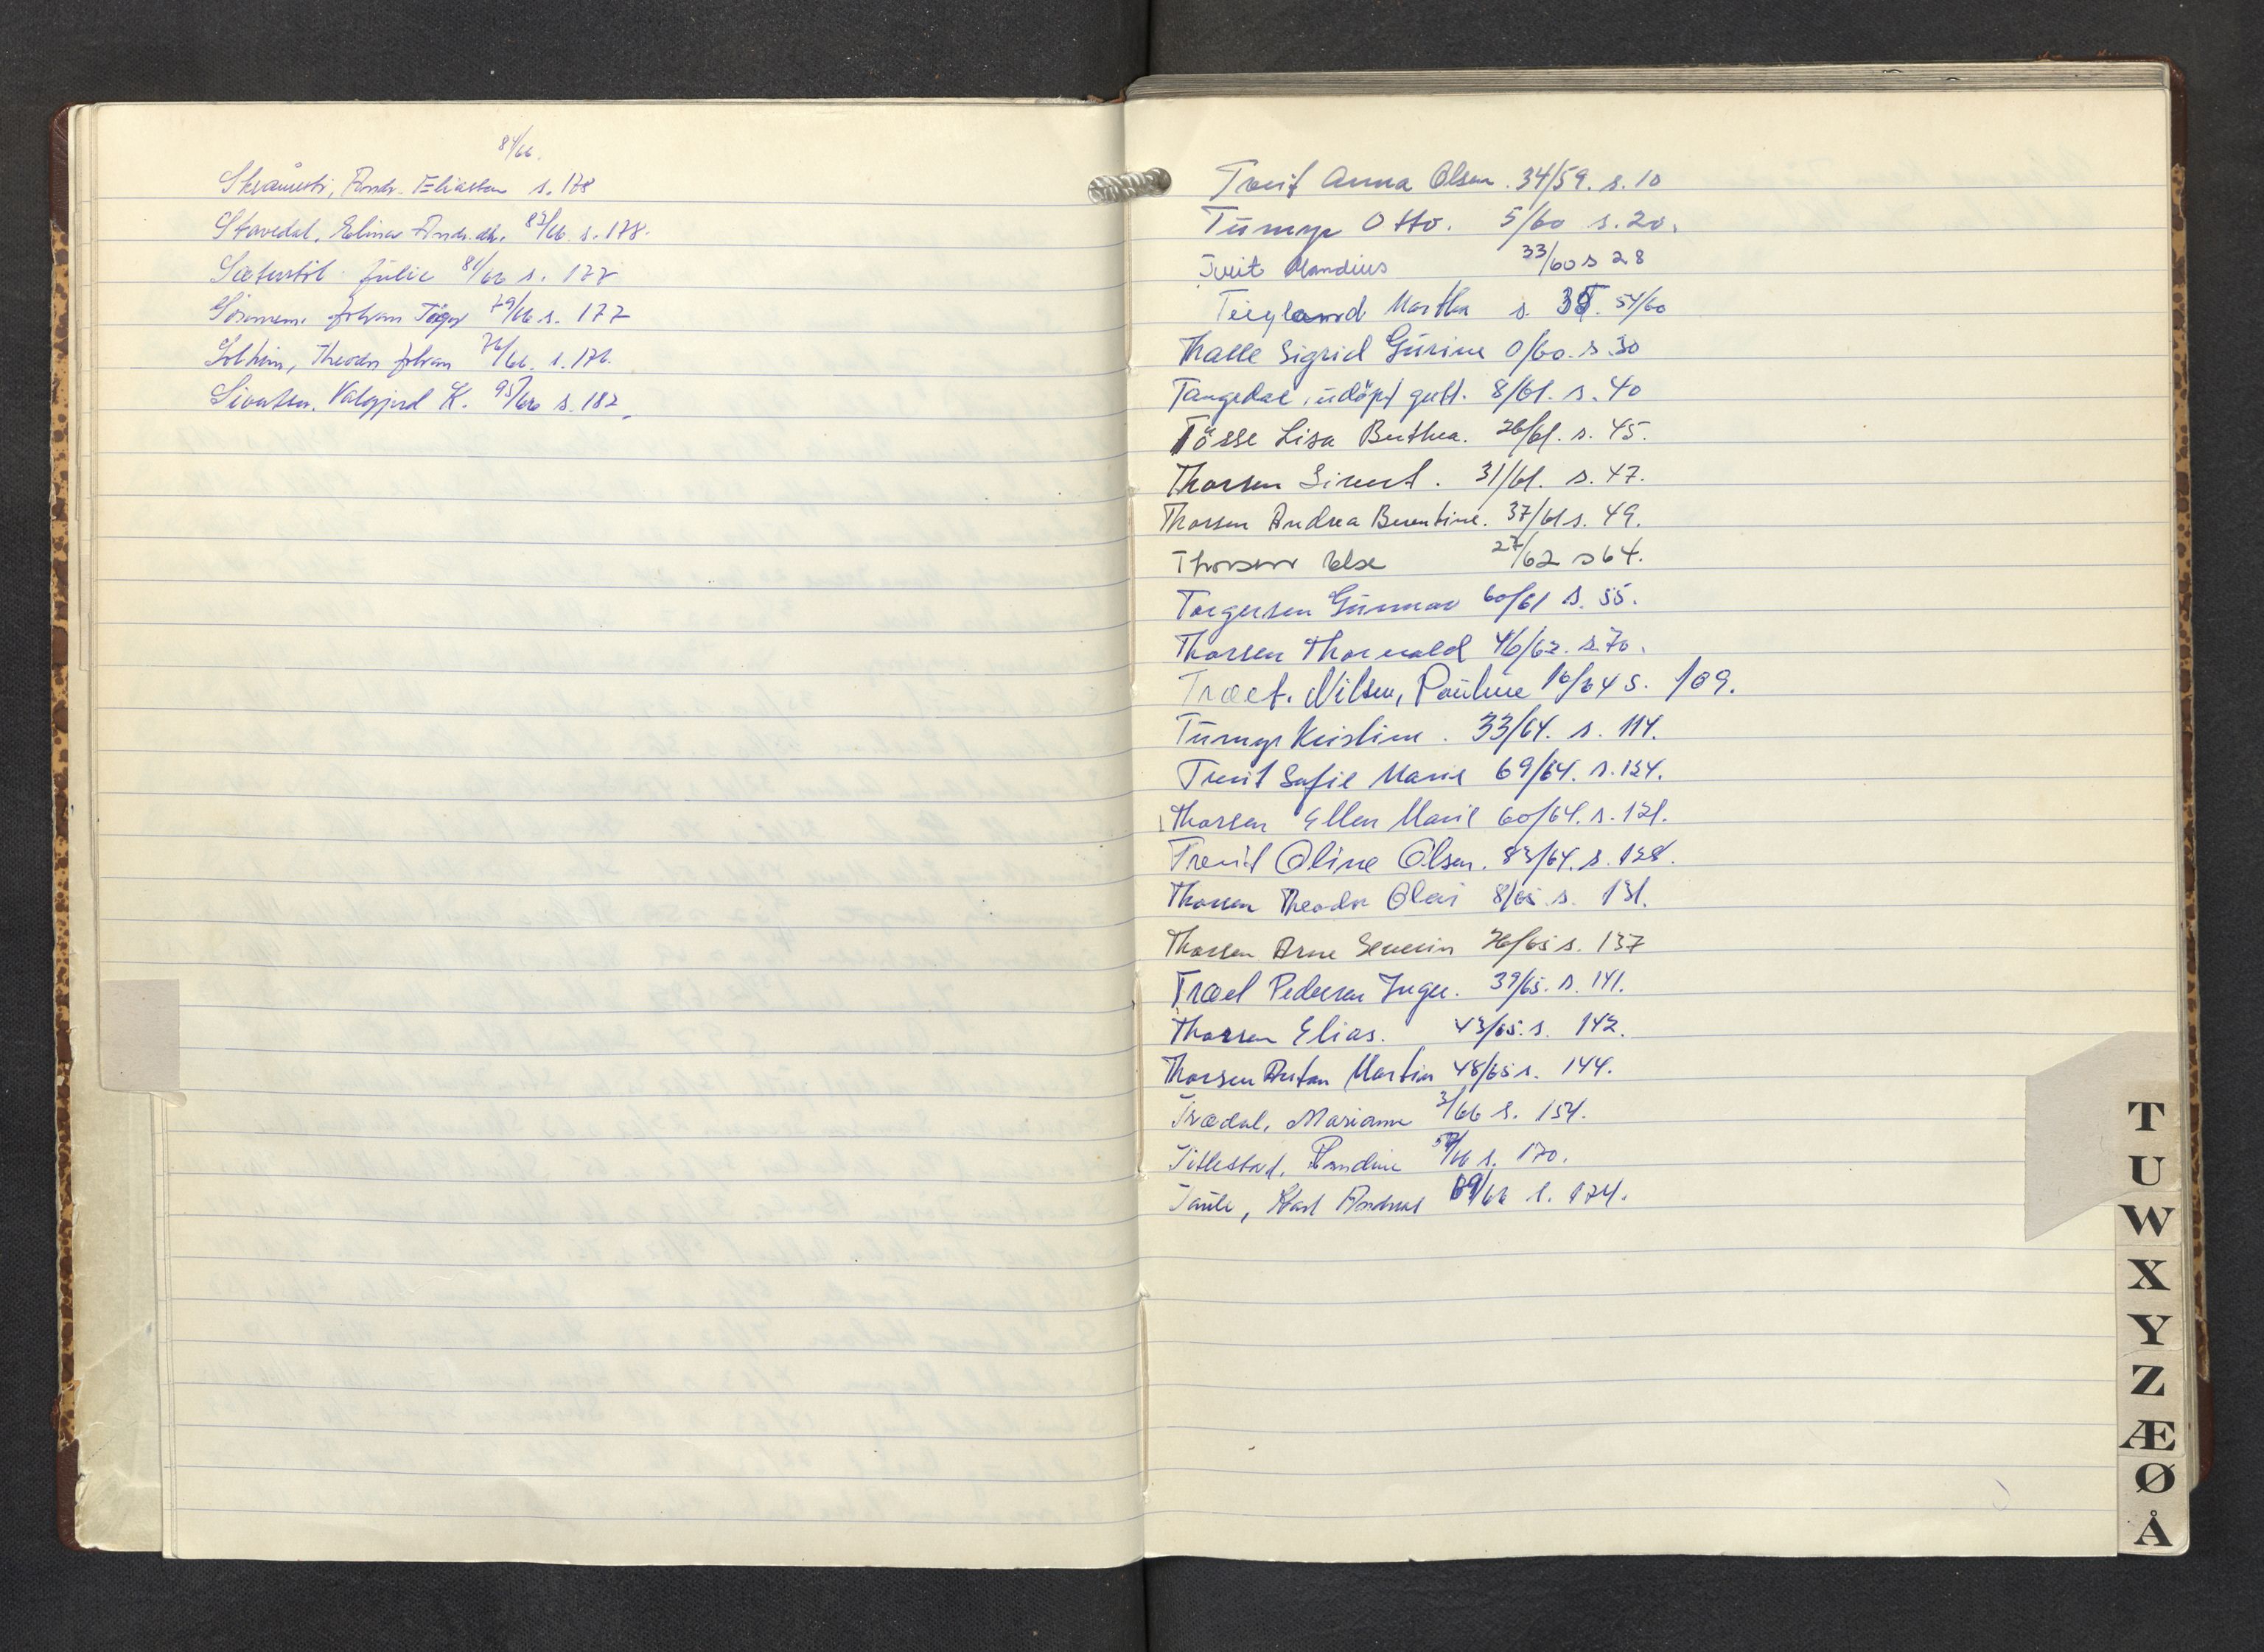 84/66.
Skråmesto, Andr. Eliassen s. 178
Stavedal, Elina Andr. dt. 83/66 s. 178.
Sæterstöl Julie 81/66 s. 177
Johan 79/66 s. 177
Solheim, Theodor Johan 76/66. s. 176.
Sivertsen, Valgjerd K. 95/66 s. 182.
Tveit Anna Olsen. 34/59. s. 10
Otto. 5/60 s. 20.
Tveit 33/60 s 28
Teigland Martha s. 54/60
Thalle Sigrid Gurine 0/60. s. 30
Tangedal, udöpt gutt. 8/61. s. 40
Tösse Lisa Berthea. 26/61. s. 45.
Thorsen Sivert. 31/61. s. 47.
Thorsen Andrea Berentine. 37/61 s. 49.
Thorsen Else 27/62 s 64.
Torgersen Gunnar 60/61 s. 55.
Thorsen Thorvald 46/62. s. 70.
Træet. Nilsen, Pauline 16/64 s. 109.
Kristine. 33/64. s. 114.
Tveit Sofie Marie 69/64. s. 124.
Thorsen Ellen Marie 60/64. s. 121.
Tveit Oline Olsen. 83/64. s. 128.
Thorsen Theodor Olai 8/65. s. 131.
Thorsen Arne Severin 26/65 s. 137
Træet Pedersen Inger. 39/65. s. 141.
Thorsen Elias. 43/65. s. 142.
Thorsen Anton Martin 48/65 s. 144.
Trædal, Marianne 3/66 s. 154.
Titlestad, /66 s. 170.
Taule, Karl Andreas 69/66 s. 174.
T
U
W
X
Y
Z
Æ
Ø
Å